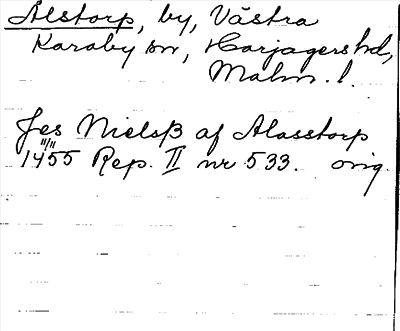 Alstorp, by, Västra
Karaby sn, Harjagers hd,
Malm. l.
Jes Nielsß af Alasstorp
11/11
1455 Rep. II nr 533. orig.